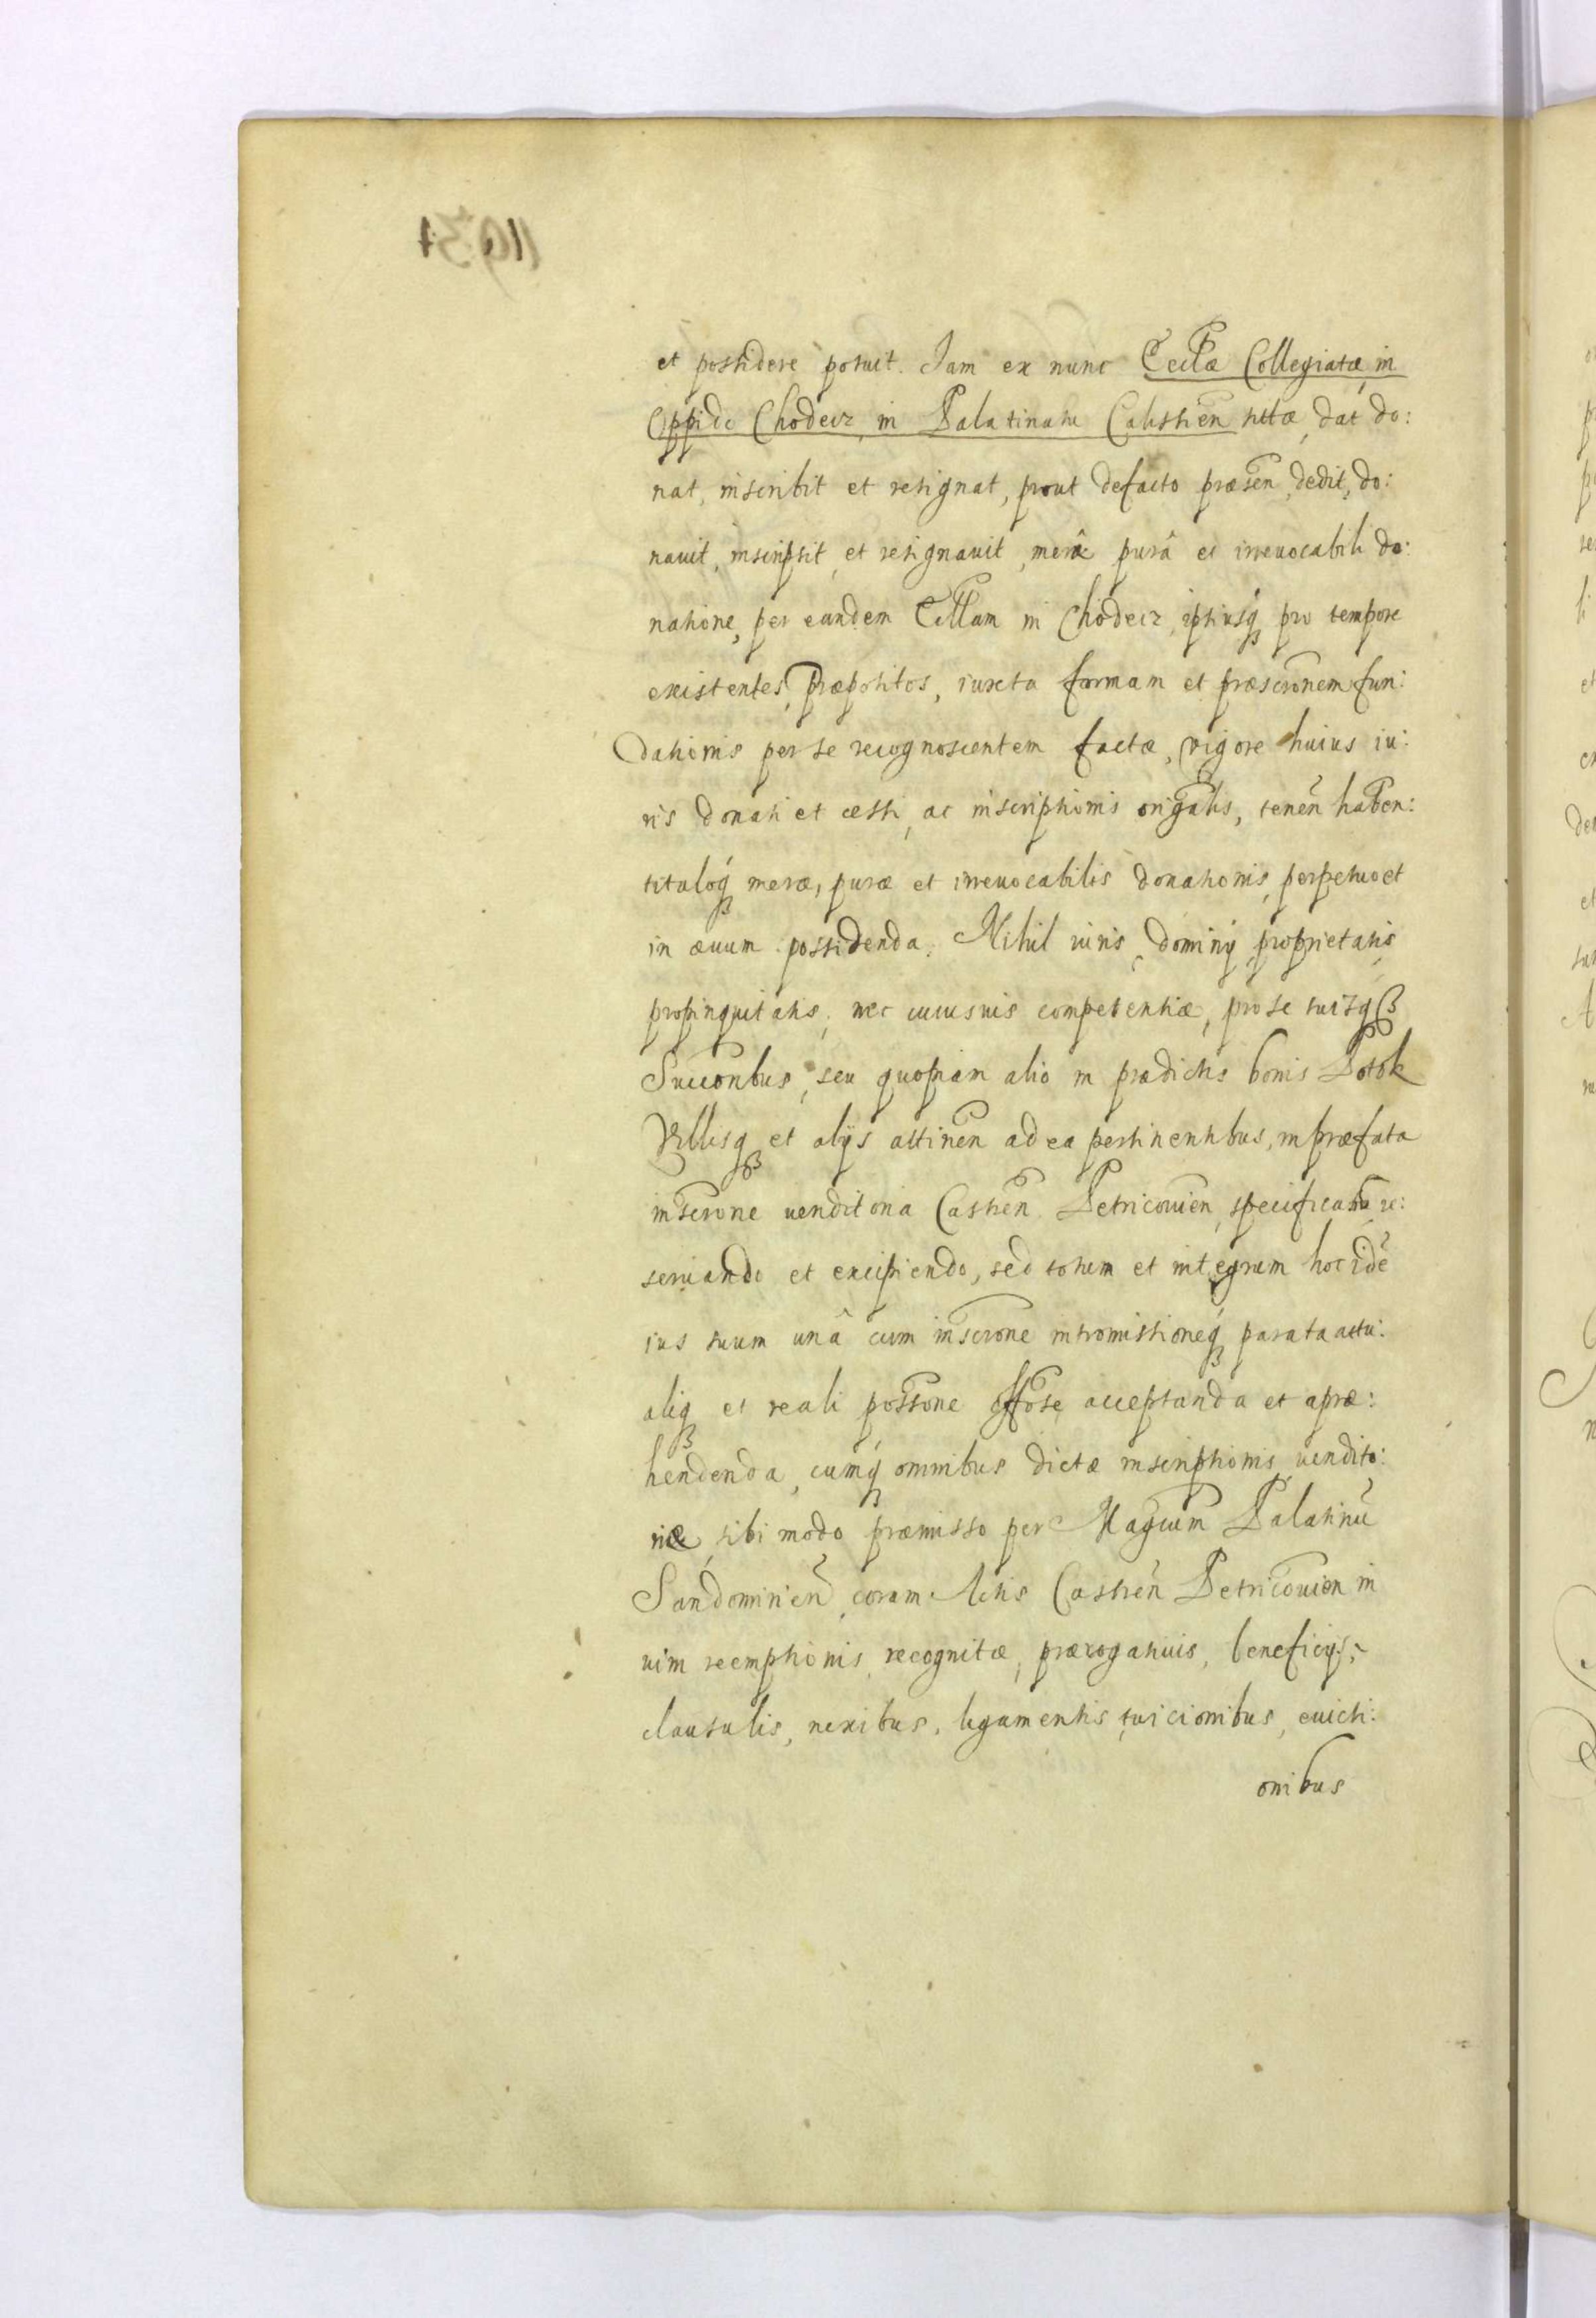 et possidere potuit. Iam ex nunc Eccłæ Collegiatæ in
Oppido Chodecz in Palatinatu Calissien sitæ, dat do:
nat, inscribit et resignat, prout defacto præsen, dedit, do:
nauit, inscripsit, et resignauit, merâ purâ et irreuocabili do:
natione, per eandem Ecłłam in Chodecz, ipsiusq₃ pro tempore
existentes, Præpositos, iuxta formam et præscr̃onem fun:
dationis per se recognoscentem factæ, vigore huius iu:
ris donati et cessi, ac inscriptionis origałis, tenen̄ haben:
tituloq₃ meræ, puræ et irreuocabilis donationis, perpetuo et
in æuum possidenda. Nihil iuris, dominij proprietatis,
propinquitatis, nec cuiusuis competentiæ, pro se suisq₃
Succoribus, seu quopiam alio in prædictis bonis Potok
Villisq₃ et alijs attinen̄ ad ea pertinentibus, in præfata
inscr̃one venditoria Castren̄ Petricouien, specificatis re:
seruando et excipiendo, sed totum et integrum hoc idē
ius suum unâ cum inscr̃one intromissioneq₃ parata actu:
aliq₃ et reali possone offose acceptanda et apræ:
hendenda, cumq₃ omnibus dictæ inscriptionis vendito:
riæ sibi modo præmisso per Magcum Palatinū
Sandomirien̄, coram Actis Castren̄ Petricouien in
vim reemptionis recognitæ, prærogatiuis, beneficijs,
clausulis, nexibus, ligamentis, tuicionibus, euicti:
onibus